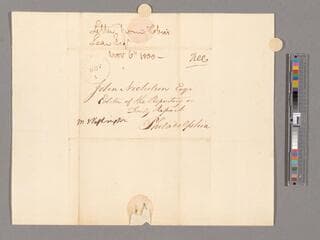 Letter from Tobias
Lear Esqr
Novr 6th 1800 –
Free
NOV
John Nicholson Esqr
Editor of the Repository or
Daily Report
Philadelphia